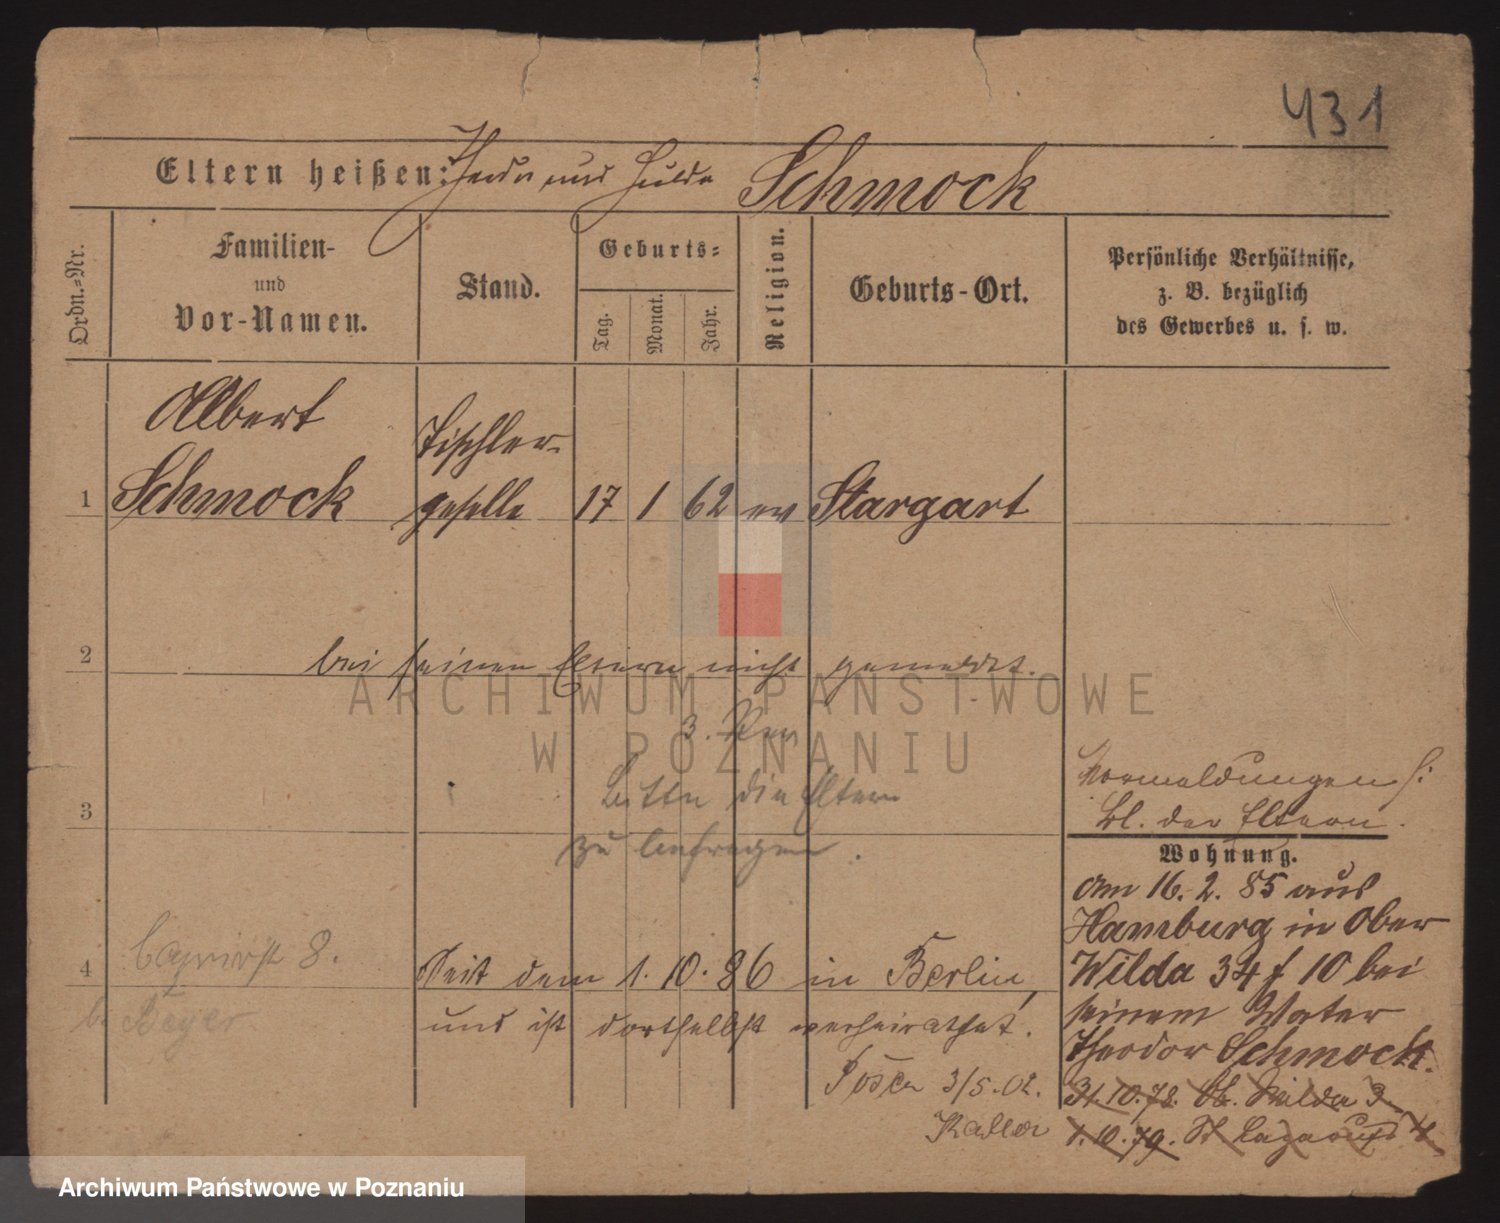 431
Eltern heißen: Theodor und Hulda Schmock
Ordn.-Nr.
Familien-
und
Vor-Namen.
Stand.
Geburts-
Tag.
Monat.
Jahr.
Religion.
Geburts-Ort.
Persönliche Verhältnisse,
z. B. bezüglich
des Gewerbes u. s. w.
Albert
Tischler-
1 Schmock geselle 17 1 62 ev Stargart
2 bei seinen Eltern nicht gemeldet.
ARCHIWUM PAŃSTWOWE
W POZNANIU
3. Rev
Bitte die Eltern
3
zu befragen.
Vormeldungen s:
Bl. der Eltern.
Wohnung.
Am 16. 2. 85 aus
Hamburg in Ober
Wilda 34 f 10 bei
seinem Vater
Theodor Schmock.
31.10.78. Ob. Wilda 3.
1.10.79. St Lazarus 4
8.
b. Beyer
4 Seit dem 1. 10. 86 in Berlin,
und ist dortselbst verheirathet.
Posen 3/5.02.
Archiwum Państwowe w Poznaniu